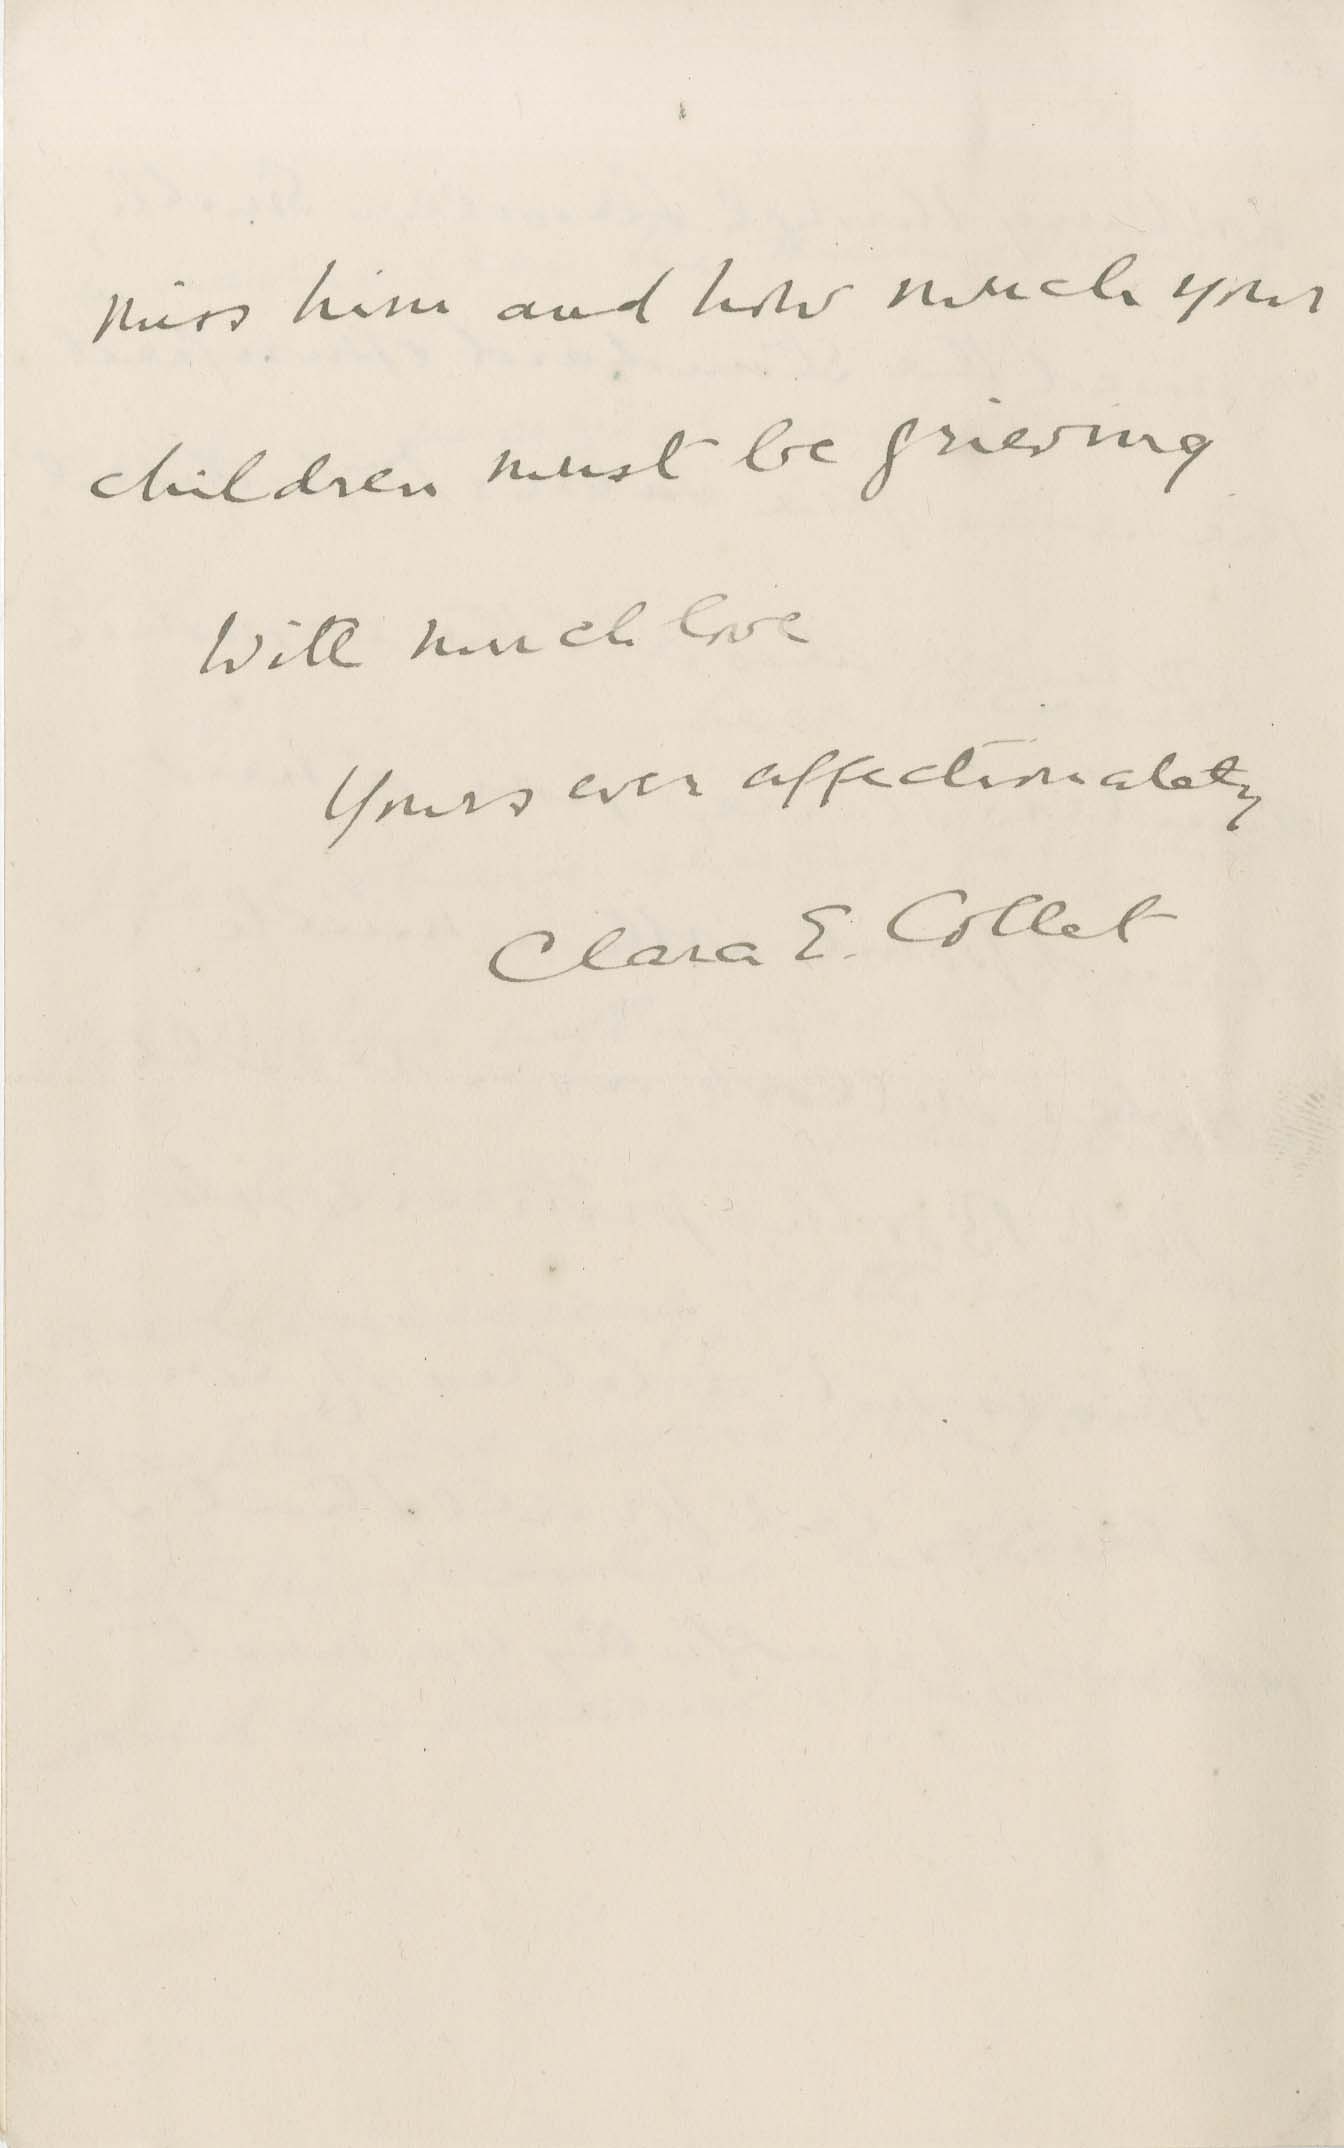 miss him and how much your
children must be grieving
With much love
Yours ever affectionately
Clara E. Collet